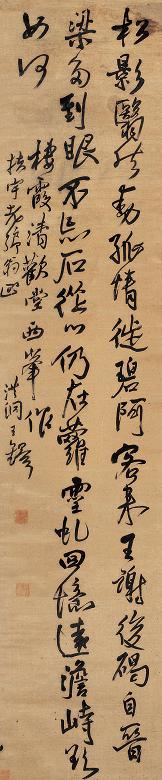 松影翳然動孤情徙碧阿客來王謝後碣自晉
梁多到眼不忘石從心仍在蘿靈虬回憶遠澹峙欲
如何
棲霞清歡堂西峯作
扶宇老翁正
洪洞王鐸